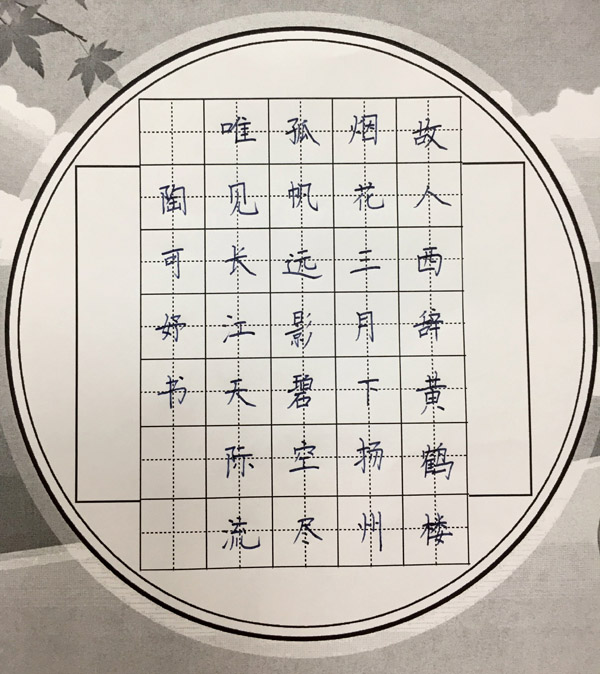 故人西辞黄鹤楼
烟花三月下扬州
孤帆远影碧空尽
唯见长江天际流
陶可妤书